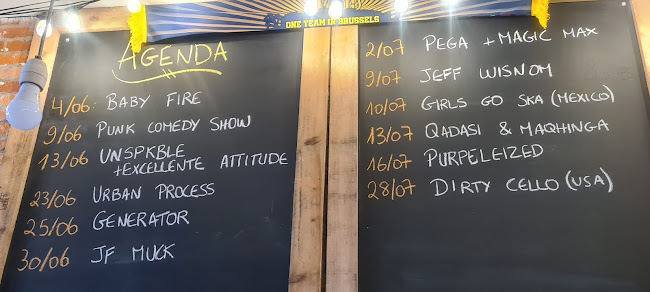 ONE TEAM IN BRUSSELS
AGENDA
4/06: BABY FIRE
9/06 PUNK COMEDY SHOW
13/06 UNSPKBLE
+EXCELLENTE ATTITUDE
23/06 URBAN PROCESS
25/06 GENERATOR
30/06 JF MUCK
2/07 PEGA + MAGIC MAX
9/07 JEFF WISNOM
10/07 GIRLS GO SKA (MEXICO)
13/07 QADASI & MAQHINGA
16/07 PURPELEIZED
28/07 DIRTY CELLO (USA)